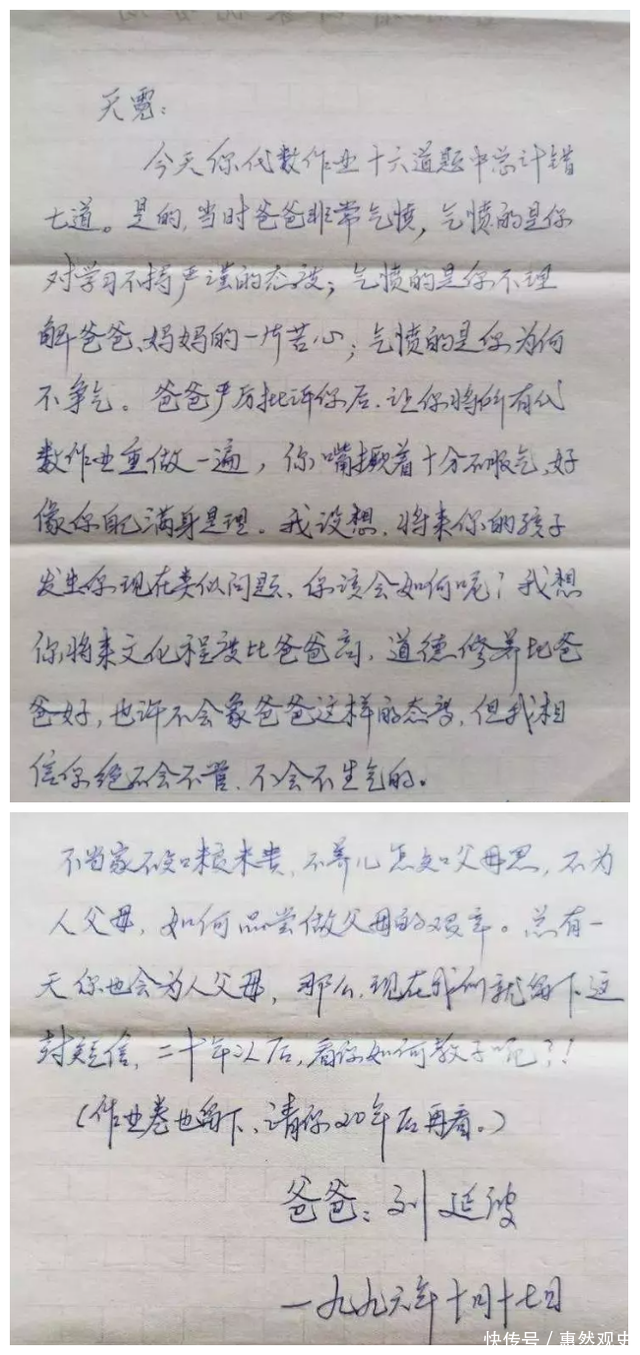 天霓：
今天你代数作业十六道题中总计错
七道。是的，当时爸爸非常气愤，气愤的是你
对学习不持严谨的态度；气愤的是你不理
解爸爸、妈妈的一片苦心；气愤的是你为何
不争气。爸爸严厉批评你后，让你将所有代
数作业重做一遍，你嘴撅着十分不服气，好
像你自己满身是理。我设想，将来你的孩子
发生你现在类似问题，你该会如何呢？我想
你将来文化程度比爸爸高，道德修养比爸
爸好，也许不会象爸爸这样的态度，但我相
信你绝不会不管，不会不生气的。
不当家不知柴米贵，不养儿怎知父母恩，不为
人父母，如何品尝做父母的艰辛。总有一
天你也会为人父母，那么，现在我们就留下这
封短信，二十年以后，看你如何教子呢？！
（作业卷也留下，请你20年后再看。）
爸爸：刘延波
一九九六年十月十七日
快传号/惠然观史